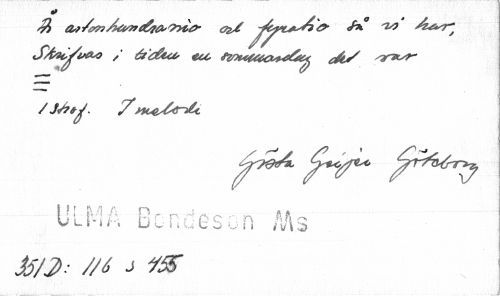 På artonhundranio och fyratio så vi har,
Skrifvas i tiden en sommardag det var
1 strof. 1 melodi
Gösta Geijer Göteborg
ULMA Bondeson Ms
351D: 116 s 455